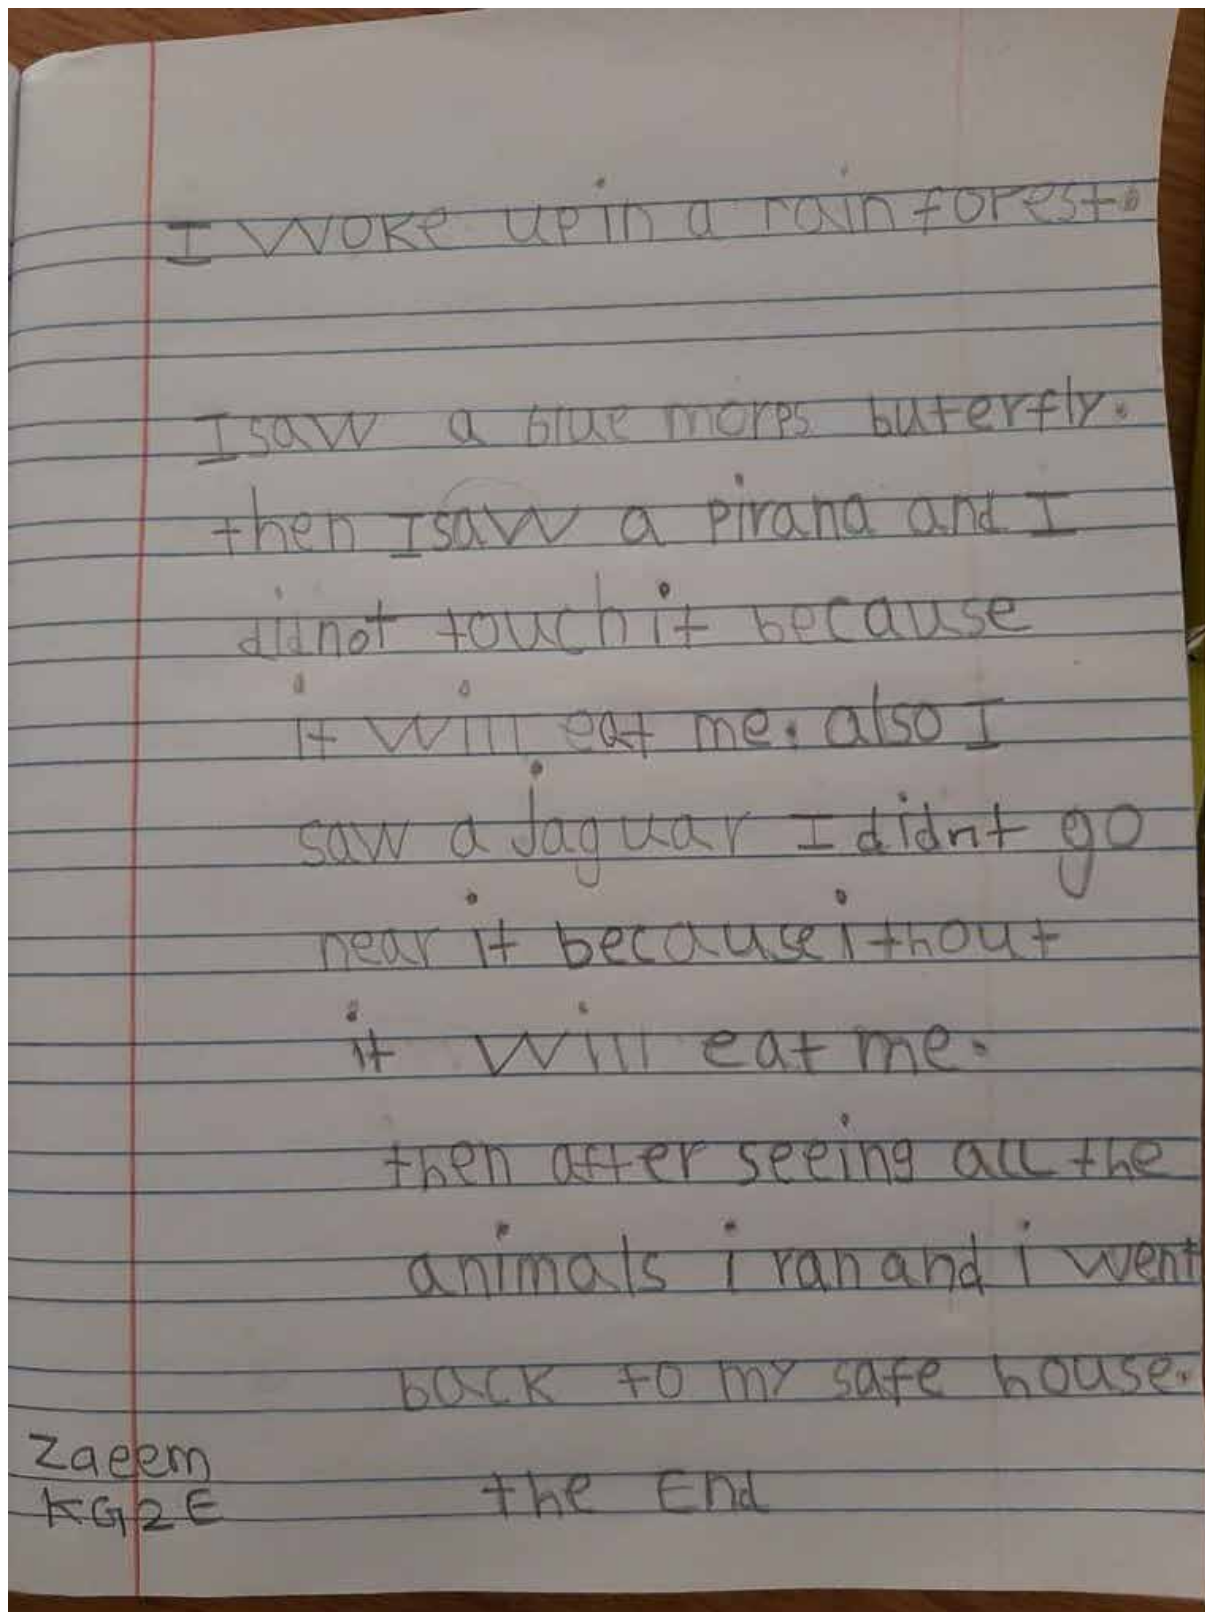 I woke up in a rain forest.
I saw a blue morps buterfly.
then I saw a pirana and I
did not touch it because
it will eat me. also I
saw a jaguar I didnt go
near it because i thout
it will eat me.
then after seeing all the
animals i ran and i went
back to my safe house.
Zaeem
KG2E
the End